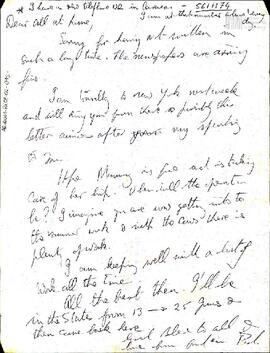 I have a new telephone no in Caracas - 5611174
I am at this number almost every day
Dear all at home,
Sorry for having not written in
such a long time. The newspapers are arriving
fine.
I am travelling to New York next week
and will ring you from there so possibly this
letter arrives after your my speaking
to you.
Hope Mummy is fine and is taking
care of her hip. When will the operation
be? I imagine you are now getting into
the summer work & with the cows there is
plenty of work.
I am keeping well with a lot of
work all the time.
All the best then. I'll be
in the States from 13 → 25 June &
then come back here
God bless to all &
Paul